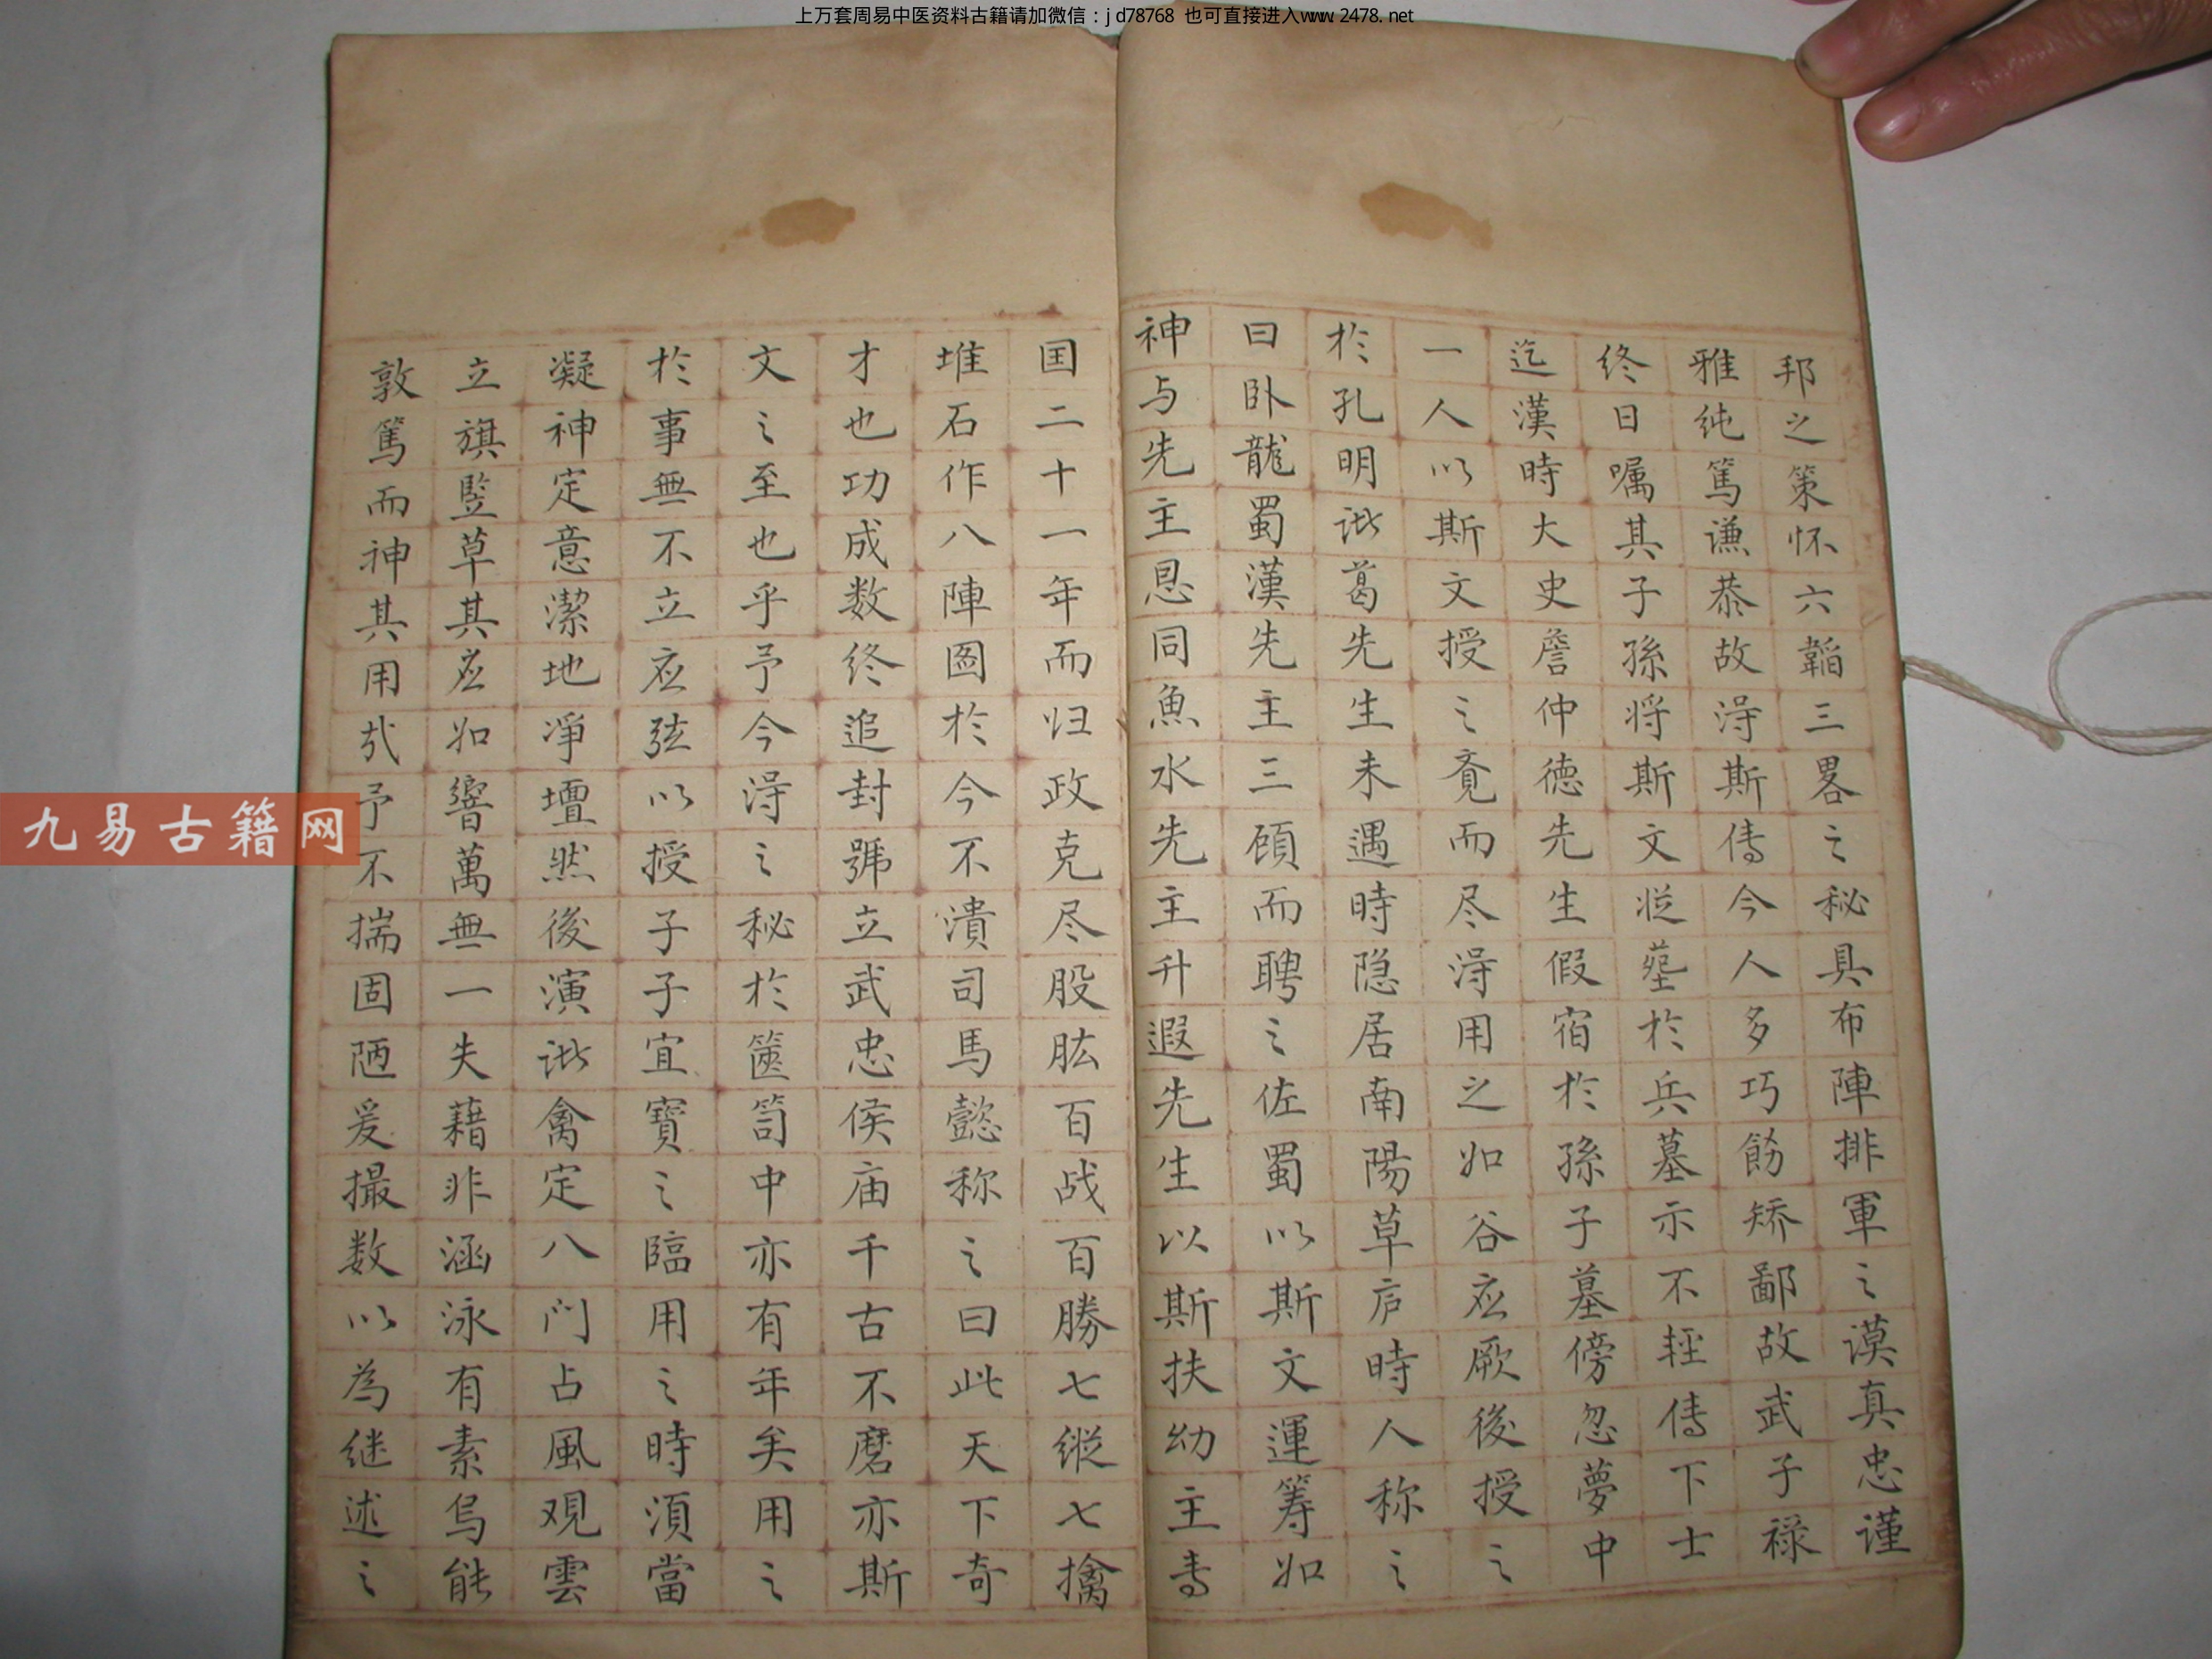 上万套周易中医资料古籍请加微信：jd78768 也可直接进入www.2478.net
邦之策怀六韜三畧之秘具布陣排軍之謨真忠谨
雅纯篤谦恭故淂斯传今人多巧餝矫鄙故武子禄
终日嘱其子孫将斯文從塟於兵墓示不輕傳下士
迄漢時大史詹仲德先生假宿於孫子墓傍忽夢中
一人以斯文授之竟而尽淂用之如谷应厥後授之
於孔明诸葛先生未遇時隐居南陽草庐時人称之
曰卧龍蜀漢先主三顧而聘之佐蜀以斯文運筹如
神与先主恩同魚水先主升遐先生以斯扶幼主寿
国二十一年而归政克尽股肱百战百勝七縱七擒
堆石作八陣图於今不潰司馬懿称之曰此天下奇
才也功成数终追封號立武忠侯庙千古不磨亦斯
文之至也乎予今淂之秘於篋笥中亦有年矣用之
於事無不立应弦以授子子宜寶之臨用之時須當
凝神定意潔地淨壇然後演诸禽定八门占風观雲
立旗竪草其应如響萬無一失藉非涵泳有素烏能
敦篤而神其用哉予不揣固陋爰撮数以為继述之
九易古籍网